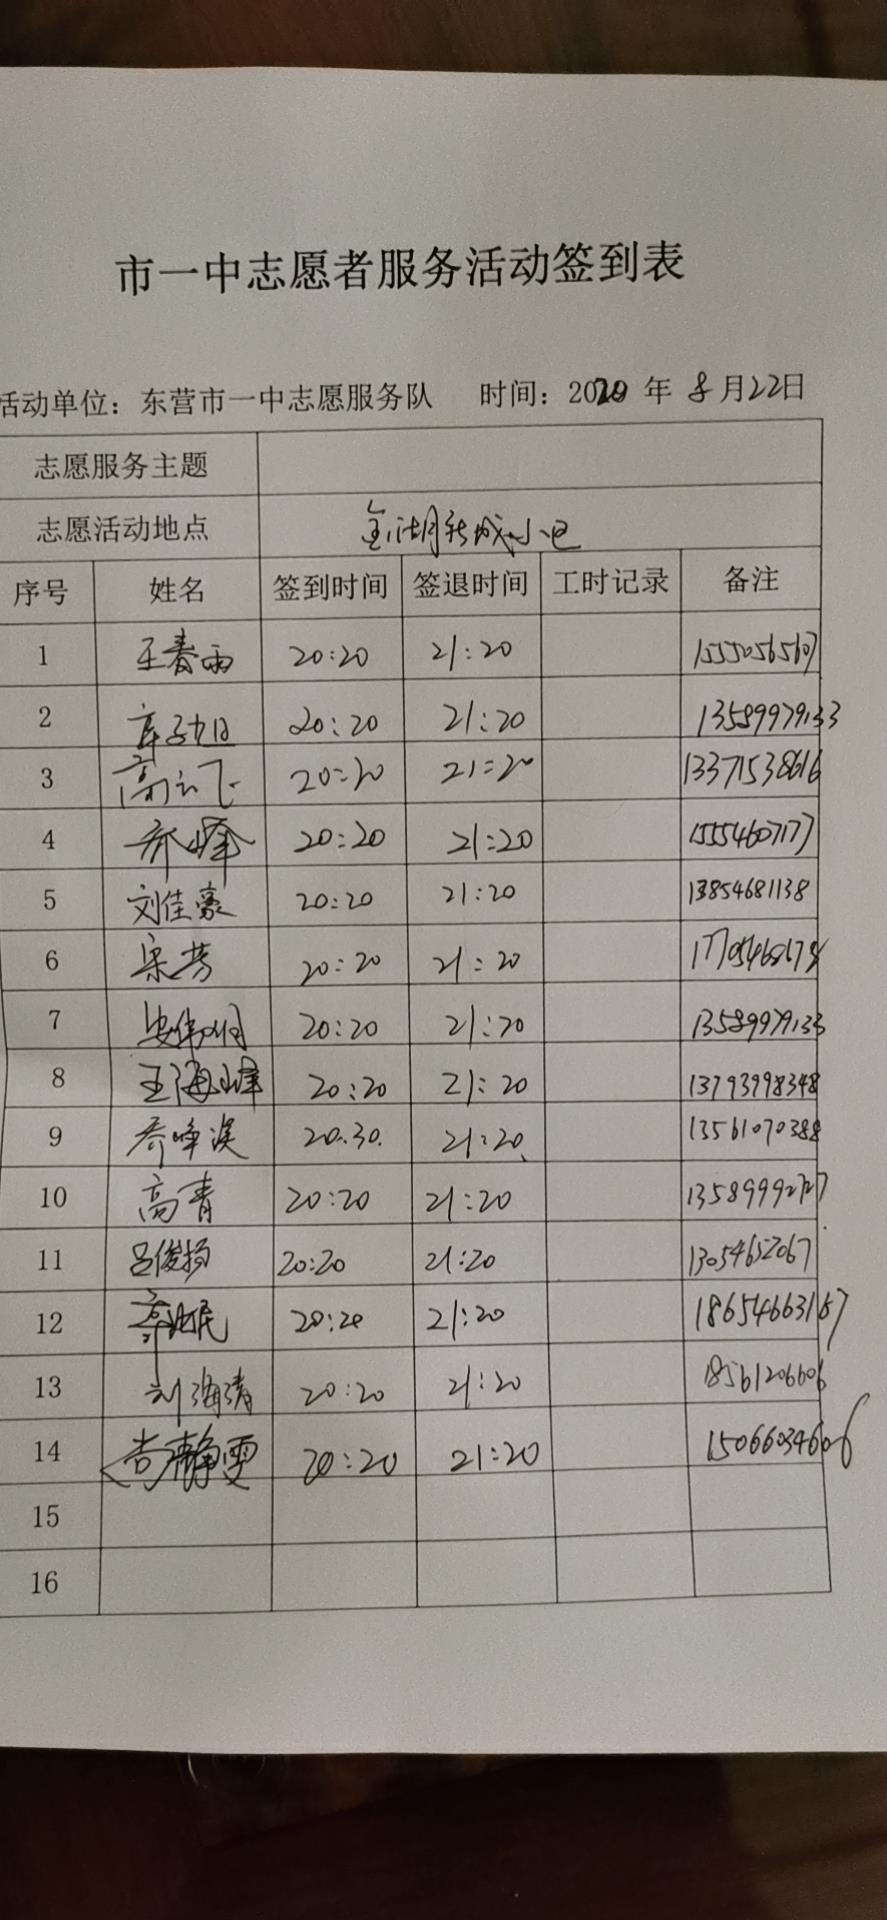 市一中志愿者服务活动签到表
活动单位：东营市一中志愿服务队 时间：2020 年 8月22日
志愿服务主题
志愿活动地点 金湖新城小区
序号 姓名 签到时间 签退时间 工时记录 备注
1 王春雨 20:20 21:20 15550565607
2 20:20 21:20 13589979133
3 高云飞 20:20 21:20 13371538616
4 乔峰 20:20 21:20 15554607177
5 刘佳豪 20:20 21:20 13854681138
6 宋芳 20:20 21:20
7 20:20 21:20 13589979133
8 王海峰 20:20 21:20 13793998348
9 20.30. 21:20 13561070388
10 高青 20:20 21:20 13589992727
11 吕俊扬 20:20 21:20 13054652067
12 20:20 21:20 18654663167
13 刘海清 20:20 21:20 18561206606
14 尚静雯 20:20 21:20 15066034606
15
16